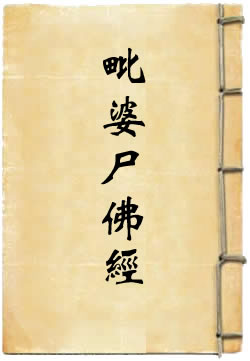 毗婆尸佛經